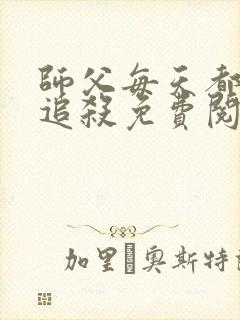 師父每天都
追殺免費閱
加里 奧斯特